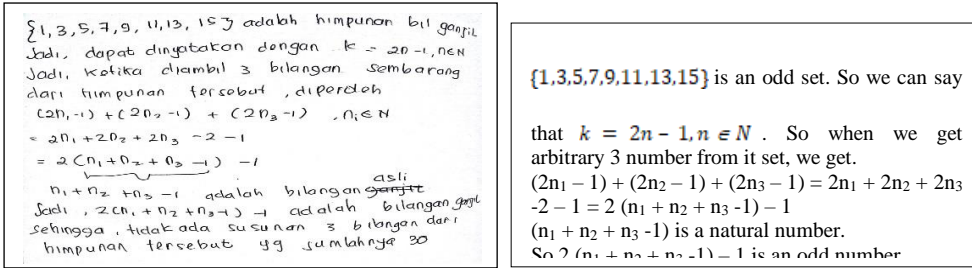 {1,3,5,7,9, 11,13, 15} adalah himpunan bil ganjil
Jadi, dapat dinyatakan dengan k = 2n-1, n∈N
Jadi, Ketika diambil 3 bilangan sembarang
dari himpunan tersebut, diperoleh
(2n₁-1) + (2n₂-1) + (2n₃-1) , nᵢ∈N
= 2n₁ + 2n₂ + 2n₃ -2 -1
= 2(n₁ + n₂ + n₃ -1) -1
asli
n₁ + n₂ + n₃ -1 adalah bilangan ganjil
Jadi, 2(n₁ + n₂ + n₃-1) -1 adalah bilangan ganjil
sehingga, tidak ada susunan 3 bilangan dari
himpunan tersebut yg jumlahnya 30
{1,3,5,7,9,11,13,15} is an odd set. So we can say
that k = 2n − 1, n ∈ N . So when we get
arbitrary 3 number from it set, we get.
(2n₁ – 1) + (2n₂ – 1) + (2n₃ – 1) = 2n₁ + 2n₂ + 2n₃
-2 – 1 = 2 (n₁ + n₂ + n₃ -1) – 1
(n₁ + n₂ + n₃ -1) is a natural number.
So 2 (n₁ + n₂ + n₃ -1) – 1 is an odd number